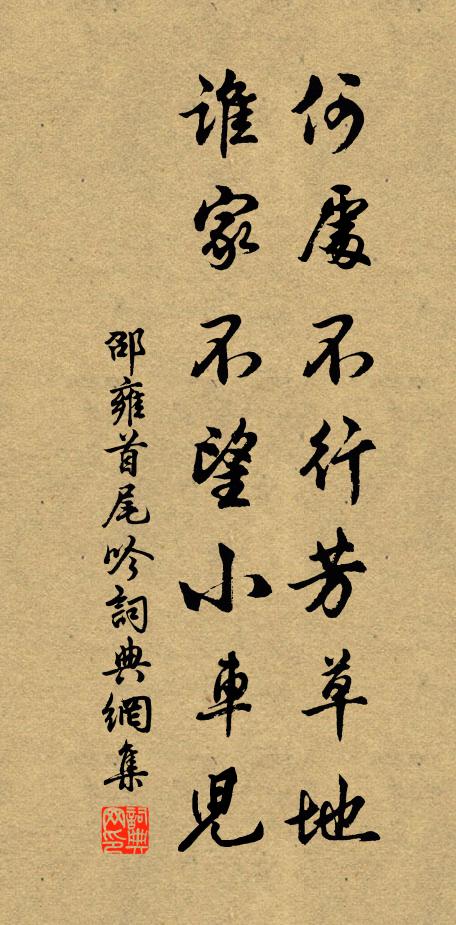 何處不行芳草地
誰家不望小車兒
邵雍首尾吟詞典網集
詞典網印